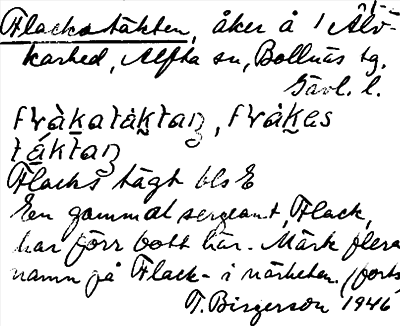 Flackatäkten, åker å 1 Älv-
karhed, Alfta sn, Bollnäs tg.
Gävl. l.
Flacks tägt bls E
En gammal sergeant, Flack,
har förr bott här. Märk flera
namn på Flack- i närheten. (forts
T. Birgerson 1946